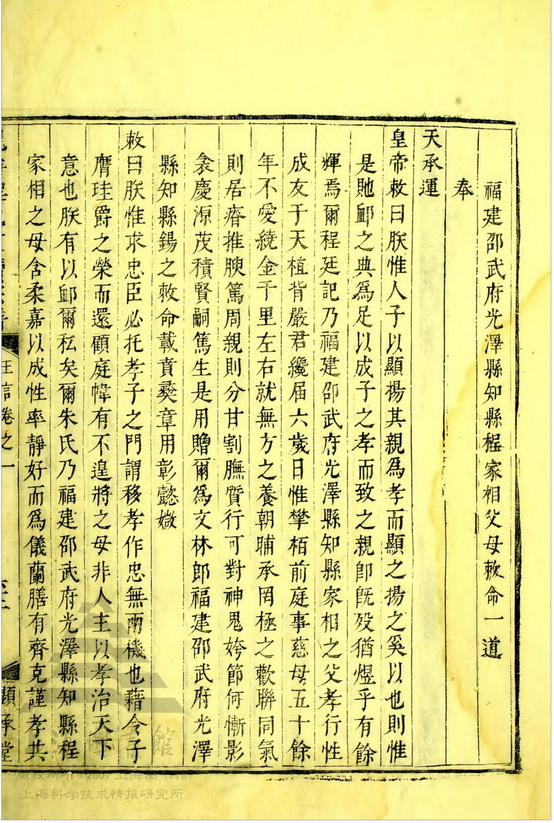 福建邵武府光澤縣知縣程家相父母敕命一道
奉
天承運
皇帝敕曰朕惟人子以顯揚其親為孝而顯之揚之奚以也則惟
是貤䘏之典為足以成子之孝而致之親卽旣歿猶煜乎有餘
輝焉爾程廷記乃福建邵武府光澤縣知縣家相之父孝行性
成友于天植背嚴君纔屆六歲日惟攀栢前庭事慈母五十餘
年不愛繞金千里左右就無方之養朝晡承罔極之歡聯同氣
則居瘠推腴篤周親則分甘割膴質行可對神鬼姱節何慚影
衾慶源茂積賢嗣篤生是用贈爾為文林郎福建邵武府光澤
縣知縣錫之敕命載賁爕章用彰懿媺
敕曰朕惟求忠臣必托孝子之門謂移孝作忠無兩機也藉令子
膺珪爵之榮而還顧庭幃有不遑將之母非人主以孝治天下
意也朕有以䘏爾私矣爾朱氏乃福建邵武府光澤縣知縣程
家相之母含柔嘉以成性率靜好而為儀蘭膳有齊克謹孝共
王言卷之一
順承堂
館
上海科学技术情报研究所